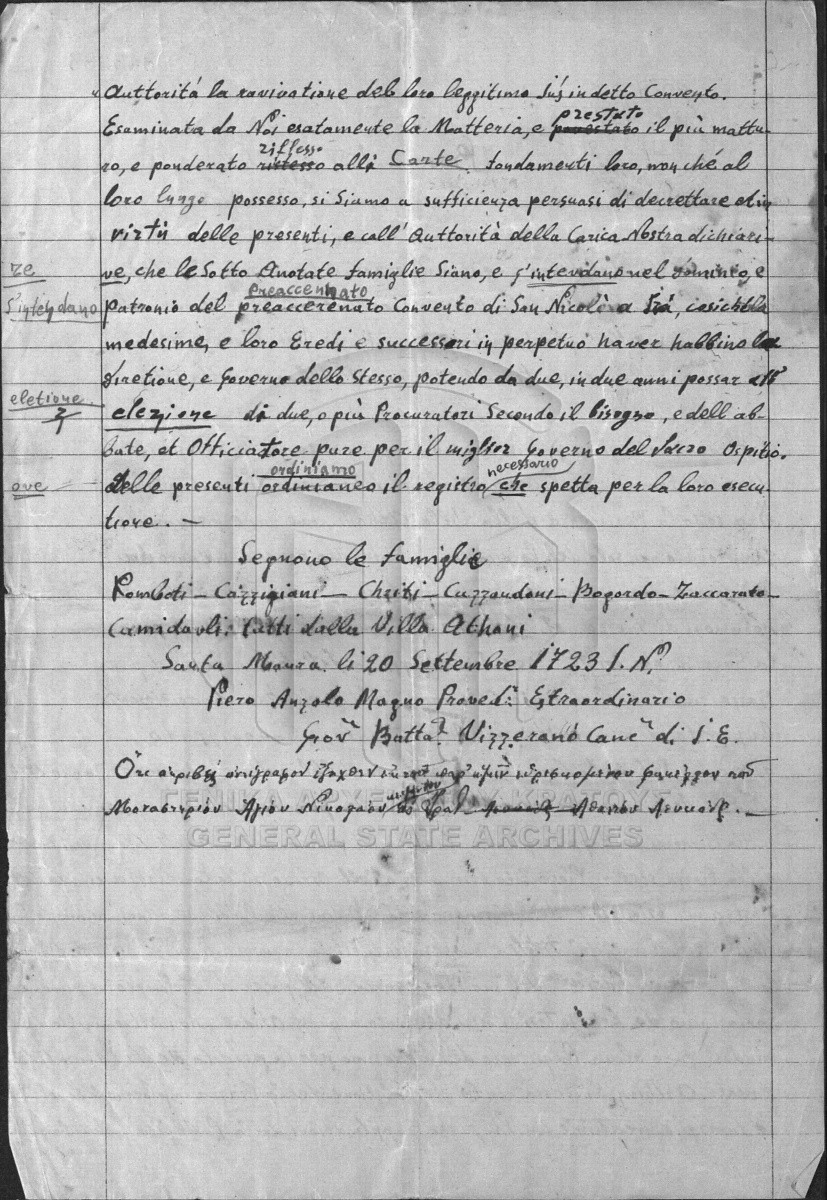 Auttorità la ravivatione del loro leggitimo jus in detto Convento.
Esaminata da Noi esatamente la Matteria, e prestato il più mattu-
ro, e ponderato riflesso alli Carte fondamenti loro, non ché al
loro lungo possesso, si siamo a sufficienza persuasi di decrettare et in
virtù delle presenti, e coll' Auttorità della Carica Nostra dichiari-
re
ve, che le Sotto Anotate famiglie Siano, e s'intevdano nel dominio, e
S'intendano
preaccennato
patronio del preaccerenato Convento di San Nicolò a Irà, cosiche la
medesime, e loro Eredi e successori in perpetuo haver habbino la
diretione, e Governo dello Stesso, potendo da due, in due anni passar all'
eletione
z
elezione di due, o più Procuratori Secondo il bisogno, e dell' ab-
bate, et Officiatore pure per il miglior Governo del Sacro Ospitio.
ordiniamo necessario
ove
Delle presenti ordinianeo il registro che spetta per la loro esecu-
tione. —
Segnono le famiglie
Romboti — Cazzigiani — Chriti — Cuzzoudoni — Bogordo — Zaccarato —
Camidauli. tutti dalla Villa Athani
Santa Maura li 20 Settembre 1723 S. N.
Piero Anzolo Magno Proved.r Estraordinario
Giov. Batta. Vizzerano Canc. di S. E.
Ότι ακριβές αντίγραφον εξαχθέν εκ του παρ' ημίν ευρισκομένου φακέλλου του
Μοναστηρίου Αγίου Νικολάου Αθανίου Λευκάδος. —
ΓΕΝΙΚΑ ΑΡΧΕΙΑ ΤΟΥ ΚΡΑΤΟΥΣ
GENERAL STATE ARCHIVES